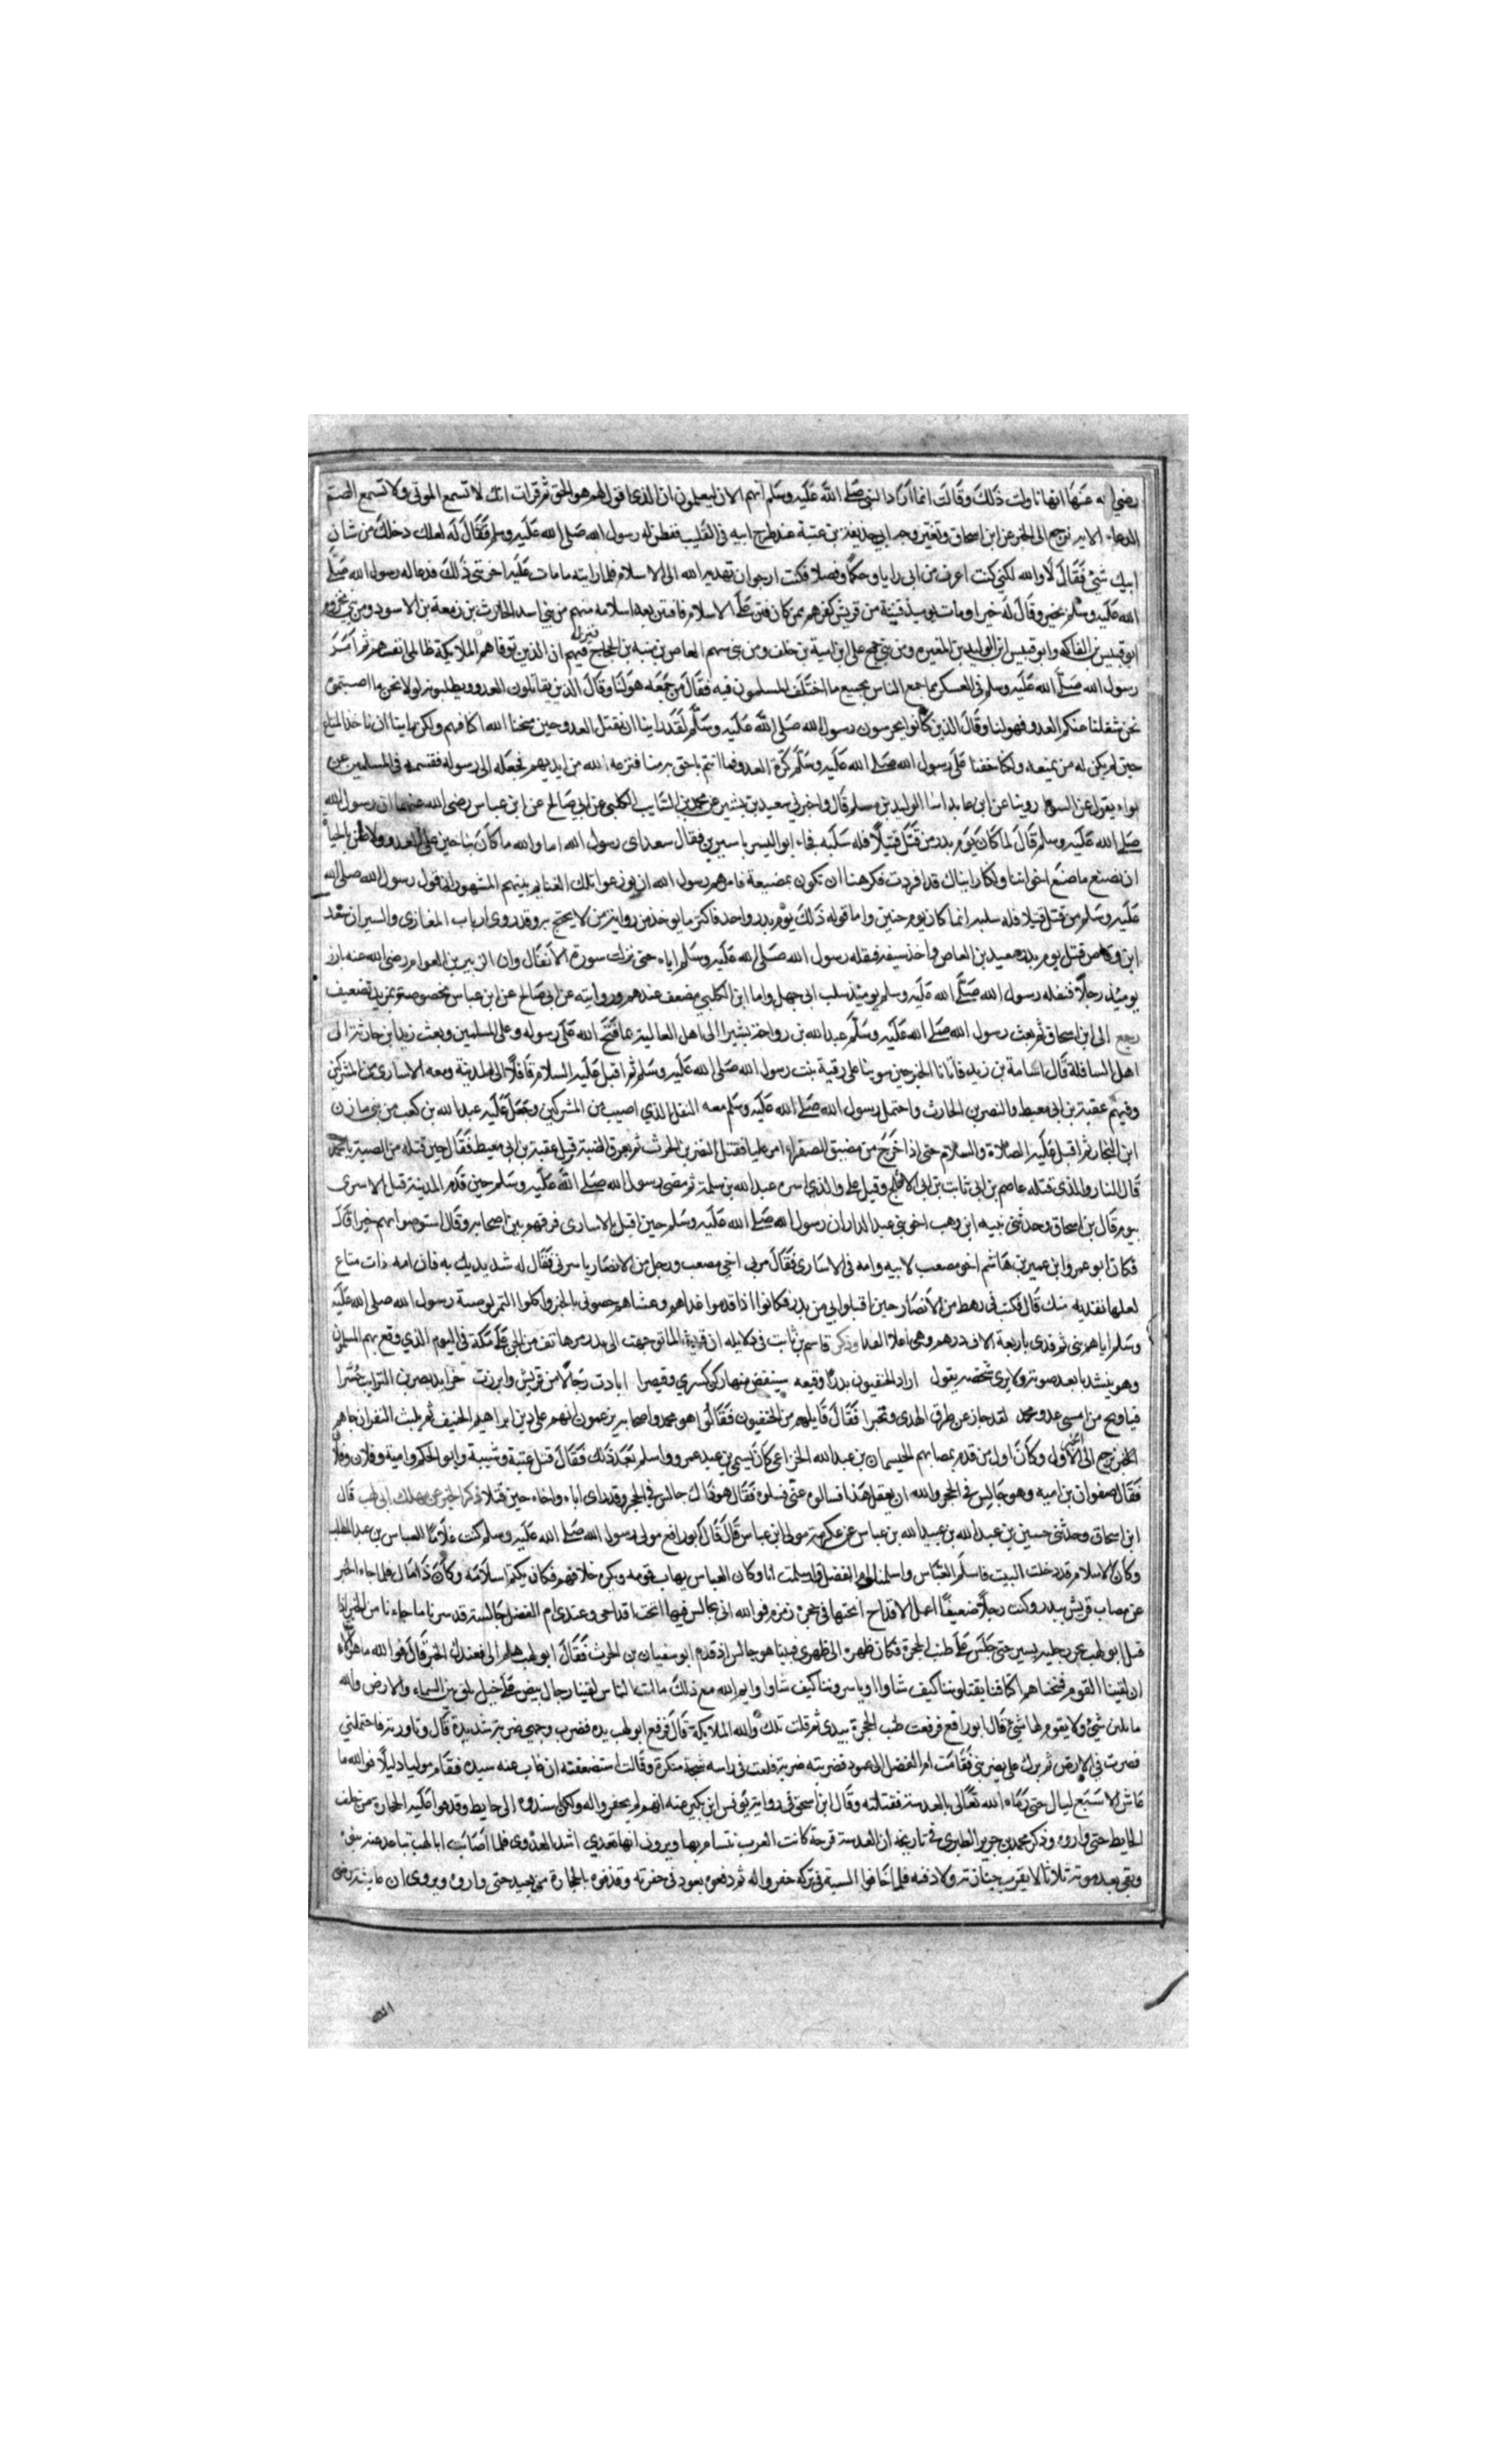 رضي الله عنها انها تاولت ذلك وقالت انما اراد النبي صلى الله عليه وسلم انهم الان ليعلمون ان الذي اقول لهم هو الحق ثم قرات انك لا تسمع الموتى ولا تسمع الصم
الدعاء الاية نرجع الى الخبر عن ابن اسحاق وتغير وجه ابي حذيفة بن عتبة عند طرح ابيه في القليب ففطن له رسول الله صلى الله عليه وسلم فقال له لعلك دخلك من شان
ابيك شئ فقال لا والله لكني كنت اعرف من ابي رايا وحكما وفضلا فكنت ارجوا ان يهديه الله الى الاسلام فلما رايته ما مات عليه احزنني ذلك فدعا له رسول الله صلى
الله عليه وسلم بخير وقال له خيرا ومات يوميذ فتية من قريش كفرهم ممن كان فتن على الاسلام فافتتن بعد اسلامه منهم من بني اسد الحارث بن زمعة بن الاسود ومن بني مخزوم
ابو قيس بن الفاكه وابو قيس ابن الوليد بن المغيرة ومن بني جمح علي ابن امية بن خلف ومن بني سهم العاص بن منبه بن الحجاج فنزل فيهم ان الذين توفاهم الملايكة ظالمي انفسهم ثم امر
رسول الله صلى الله عليه وسلم في العسكر بما جمع الناس بجميع ما اختلف المسلمون فيه فقال من جمعه هو لنا وقال الذين يقاتلون العدو ويطلبونه لولا نحن ما اصبتموه
نحن شغلنا عنكم العدو فهو لنا وقال الذين كانوا يحرسون رسول الله صلى الله عليه وسلم لقد راينا ان نقتل العدو حين منحنا الله اكتافهم ولكن راينا ان ناخذ المتاع
حين لم يكن له من يمنعه ولكنا خفنا على رسول الله صلى الله عليه وسلم كرة العدو فما انتم باحق به منا فنزعه الله من ايديهم فجعله الى رسوله فقسمه في المسلمين عن
بواء يقول عن السوا روينا عن ابن عايد انبا الوليد بن مسلم قال واخبرني سعيد بن بشير عن محمد بن السايب الكلبي عن ابي صالح عن ابن عباس رضي الله عنهما ان رسول الله
صلى الله عليه وسلم قال لما كان يوم بدر من قتل قتيلا فله سلبه فجاء ابو اليسر باسيرين فقال سعد اي رسول الله اما والله ما كان بنا جبن عن العدو ولا ظن بالحياة
ان نصنع ما صنع اخواننا ولكنا رايناك قد افردت فكرهنا ان تكون بمضيعة فامرهم رسول الله ان يوزعوا تلك الغنايم بينهم المشهور ان قول رسول الله صلى الله
عليه وسلم من قتل قتيلا فله سلبه انما كان يوم حنين واما قوله ذلك يوم بدر واحد فاكثر ما يوخذ من رواية من لا يحتج به وقد روى ارباب المغازي والسير ان سعد
ابن وقاص قتل يوم بدر سعيد بن العاص واخذ سيفه فنفله رسول الله صلى الله عليه وسلم اياه حتى نزلت سورة الانفال وان الزبير بن العوام رضي الله عنه بارز
يوميذ رجلا فنفله رسول الله صلى الله عليه وسلم يوميذ سلب ابي جهل واما ابن الكلبي مضعف عندهم وروايته عن ابي صالح عن ابن عباس مخصوصة بمزيد تضعيف
رجع الى ابن اسحاق ثم بعث رسول الله صلى الله عليه وسلم عبد الله بن رواحة بشيرا الى اهل العالية بما فتح الله على رسوله وعلى المسلمين وبعث زيد بن حارثة الى
اهل السافلة قال اسامة بن زيد فاتانا الخبر حين سوينا على رقية بنت رسول الله صلى الله عليه وسلم ثم اقبل عليه السلام قافلا الى المدينة ومعه الاسارى من المشركين
وفيهم عقبة بن ابي معيط والنضر بن الحارث واحتمل رسول الله صلى الله عليه وسلم معه النفل الذي اصيب من المشركين وجعل عليه عبد الله بن كعب من بني مازن
ابن النجار ثم اقبل عليه الصلاة والسلام حتى اذا خرج من مضيق الصفراء امر عليا فقتل النضر بن الحرث ثم بعرق الظبية قتل عقبة بن ابي معيط فقال حين قتله من الصبية يا محمد
قال النار والذي قتله عاصم بن ابي ثابت بن ابي الاقلح وقيل علي والذي اسره عبد الله بن سلمة ثم مضى رسول الله صلى الله عليه وسلم حين قدم المدينة قبل الاسرى
بيوم قال بن اسحاق وحدثني نبيه ابن وهب اخو بني عبد الدار ان رسول الله صلى الله عليه وسلم حين اقبل بالاسارى فرقهم بين اصحابه وقال استوصوا بهم خيرا قال
فكان ابو عمرو ابن عمير بن هاشم اخو مصعب لابيه وامه في الاسارى فقال مر بي اخي مصعب ورجل من الانصار ياسرني فقال له شد يديك به فان امه ذات متاع
لعلها تفديه منك قال فكنت في رهط من الانصار حين اقبلوا بي من بدر فكانوا اذا قدموا غداهم وعشاهم خصوني بالخبز واكلوا التمر لوصية رسول الله صلى الله عليه
وسلم اياهم بي ثم فدى باربعة الاف درهم وهي اعلا الفدا وذكر قاسم بن ثابت في دلايله ان قريشا لما توجهت الى بدر مر هاتف من الجن على مكة في اليوم الذي وقع بهم المسلمون
وهو ينشد بابعد صوت ولا يرى شخصه يقول ازار الحنفيون بدرا وقيعه سينقض منها ركن كسرى وقيصرا ابادت رجالا من قريش وابرزت خرايد يضربن الترايب حسرا
فيا ويح من امسى عدو محمد لقد جاز عن طرق الهدى وتحيرا فقال قايلهم من الحنفيون فقالوا هو محمد واصحابه يزعمون انهم على دين ابراهيم الحنيف ثم لم يلبث النفر ان جاهم
الخبر نرجع الى الاول وكان اول من قدم بمصابهم الحيسمان بن عبد الله الخزاعي كان يسمى بن عبد عمرو واسلم بعد ذلك فقال قتل عتبة وشيبة وابو الحكم وامية وفلان وفلان
فقال صفوان بن اميه وهو جالس في الحجر والله ان يعقل هذا فسالوه عني فسلوه فقال هو ذاك جالس في الحجر وقد راى اباه واخاه حين قتلا ذكر الخبر عن مهلك ابي لهب قال
ابن اسحاق وحدثني حسين بن عبد الله بن عبيد الله بن عباس عن عكرمة مولى ابن عباس قال قال ابو رافع مولى رسول الله صلى الله عليه وسلم كنت غلاما للعباس بن عبد المطلب
وكان الاسلام قد دخلت البيت فاسلم العباس واسلمت ام الفضل واسلمت انا وكان العباس يهاب قومه ويكره خلافهم فكان يكتم اسلامه وكان ذا مال فلما جاء الخبر
عن مصاب قريش ببدر وكنت رجلا ضعيفا اعمل الاقداح انحتها في حجرة زمزم فوالله اني لجالس فيها انحت اقداحي وعندي ام الفضل جالسة قد سرنا ما جاءنا من الخبر اذا
قبل ابو لهب يجر رجليه بسير حتى جلس على طنب الحجرة فكان ظهره الى ظهري فبينا هو جالس اذ قدم ابو سفيان بن الحرث فقال ابو لهب هلم الي فعندك الخبر قال فوالله ما هو الا
ان لقينا القوم فمنحناهم اكتافنا يقتلوننا كيف شاوا وياسروننا كيف شاوا وايم الله مع ذلك ما لمت الناس لقينا رجال بيض على خيل بلق بين السماء والارض والله
ما تليق شئ ولا يقوم لها شئ قال ابو رافع فرفعت طنب الحجرة بيدي ثم قلت تلك والله الملايكة قال فرفع ابو لهب يده فضرب وجهي ضربة شديدة قال وثاورته فاحتملني
فضرب بي في الارض ثم برك علي يضربني فقامت ام الفضل الى عمود فضربته ضربة فلعت في راسه شجة منكرة وقالت استضعفته ان غاب عنه سيده فقام موليا ذليلا فوالله ما
عاش الا سبع ليال حتى رماه الله تعالى بالعدسة فقتلته وقال ابن اسحق في رواية يونس ابن بكير عنه انهم لم يحفروا له ولكن اسندوه الى حايط وقذفوا عليه الحجارة من خلف
الحايط حتى واروه وذكر محمد بن جرير الطبري في تاريخه ان العدسة قرحة كانت العرب تتشاءم بها ويرون انها تعدي اشد العدوى فلما اصابت ابا لهب تباعد عنه بنوه
وبقي بعد موته ثلاثا لا يقرب جنازته ولا دفنه فلما خافوا السبة في تركه حفروا له ثم دفعوه بعود في حفرته وقذفوه بالحجارة من بعيد حتى واروه ويروى ان عايشة رضي